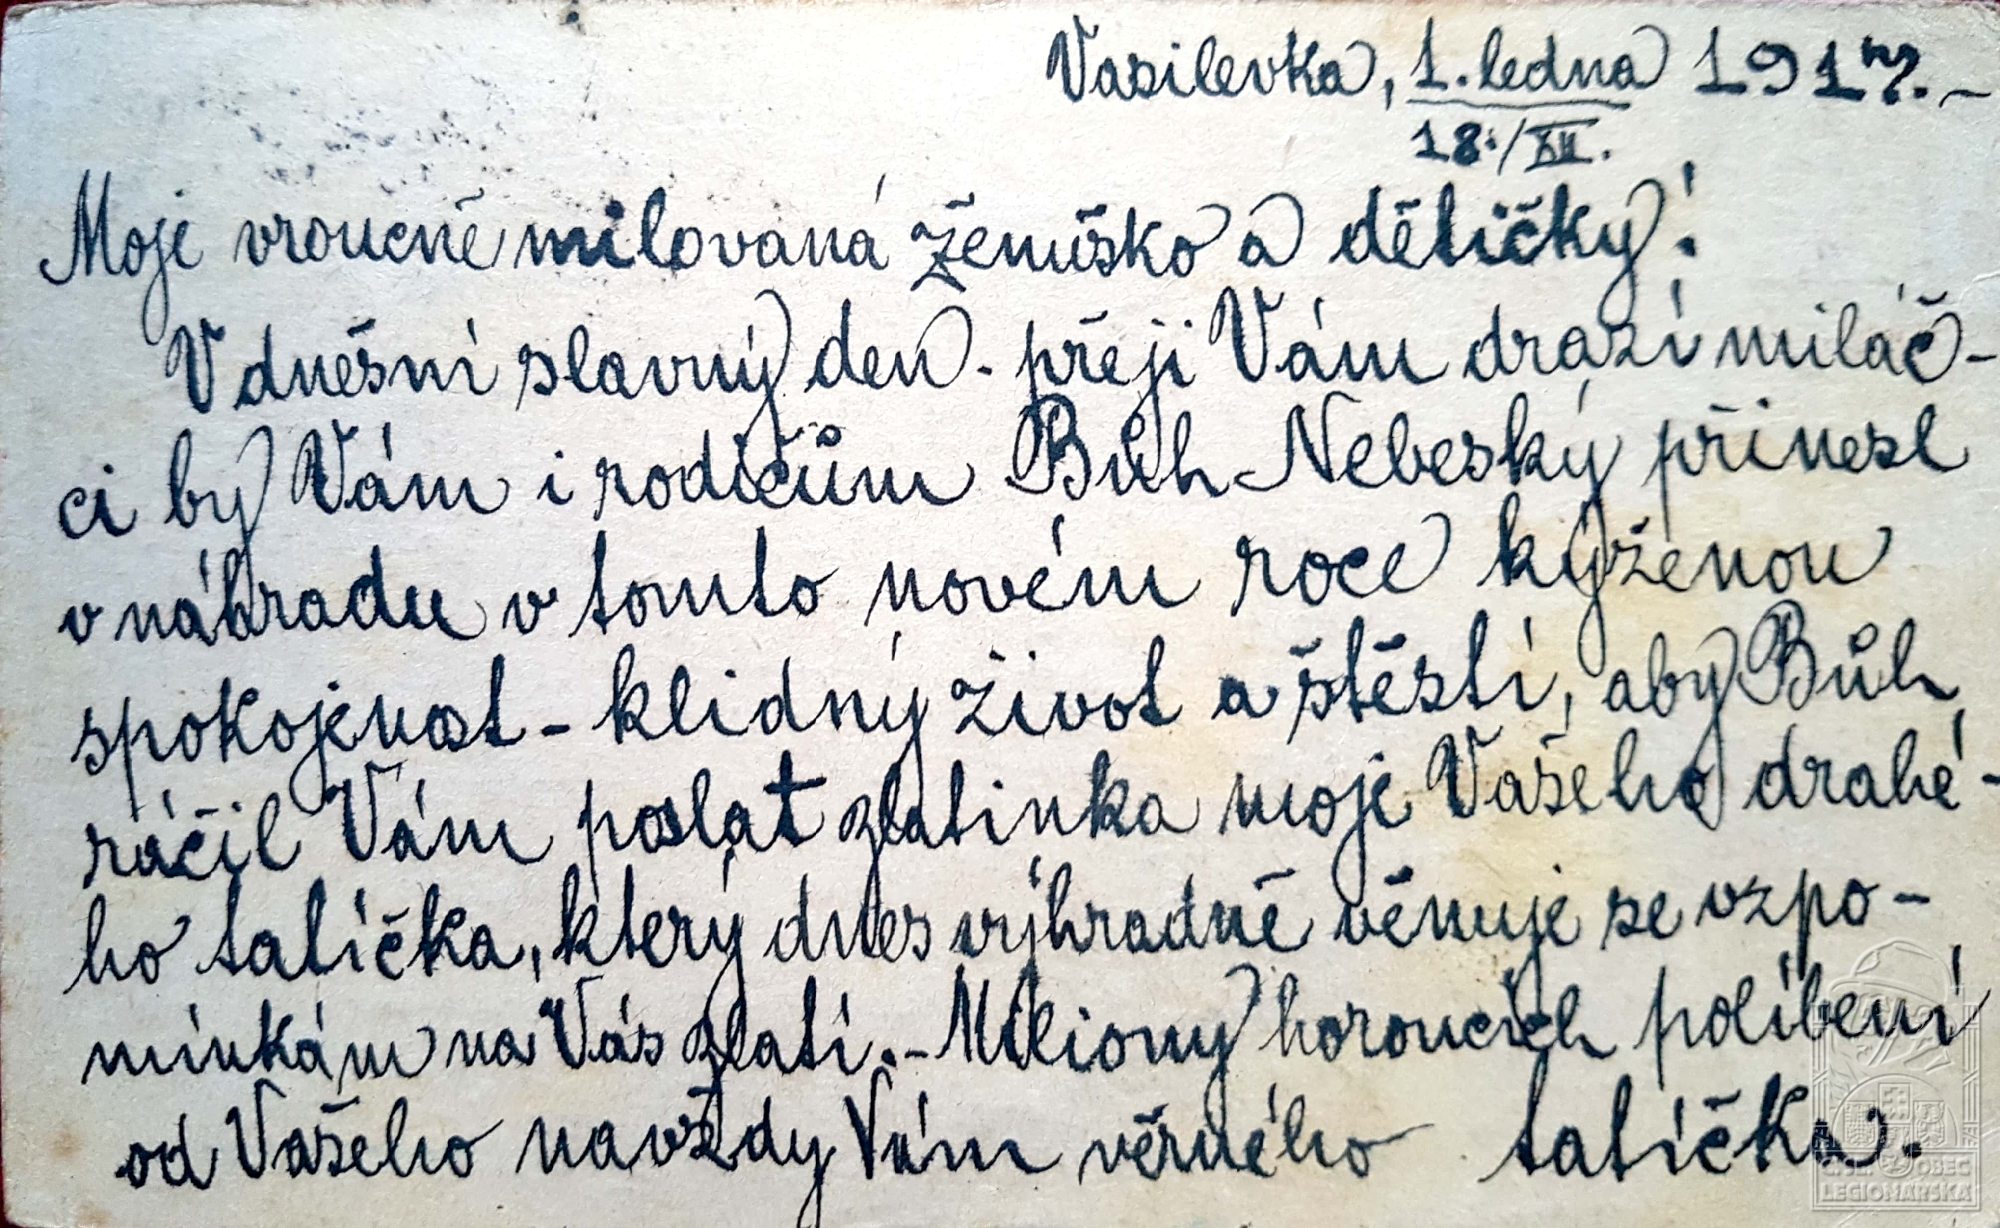 Vasilevka, 1. ledna 1917.–
18./XII.
Moje vroucně milovaná ženuško a dětičky!
V dnešní slavný den. přeji Vám drazí miláč-
ci by Vám i rodičům Bůh Nebeský přinesl
v náhradu v tomto novém roce kýženou
spokojenost – klidný život a štěstí, aby Bůh
ráčil Vám poslat zlatinka moje Vašeho drahé-
ho tatíčka, který dnes výhradně věnuje se vzpo-
mínkám na Vás zlatí. – Miliony horoucích políbení
od Vašeho navždy Vám věrného tatíčka.
Č.S.. OBEC
LEGIONÁŘSKÁ